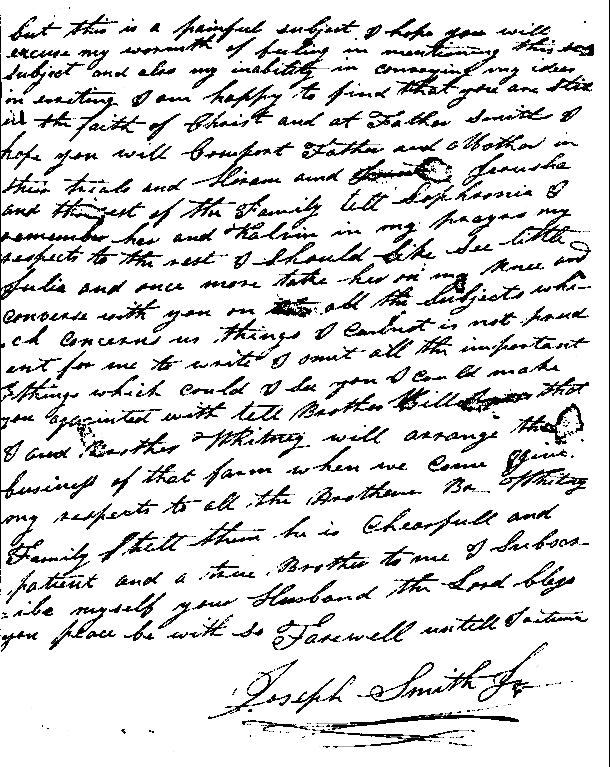 but this is a painful subject I hope you will
excuse my warmth of feeling in mentioning this
subject and also my inability in conveying my ideas
in writing I am happy to find that you are still
in the faith of Christ and at Father Smiths I
hope you will Comfort Father and Mother in
their trials and Hiram and Jerusha
and the rest of the Family tell Sophronia I
remember her and Kalvin in my prayrs my
respects to the rest I should like see little
Julia and once more take her on my knee and
converse with you on all the subjects whi-
ch concerns us things I cannot is not prud
ent for me to write I omit all the important
things which could I see you I could make
you aquainted with tell Brother Will that
I and Brother Whitney will arrange the
business of that farm when we come give
my respects to all the Brotheren Br Whitney
Family tell them he is Chearfull and
patient and a true Brother to me I subscr-
ibe myself your Husband the Lord bless
you peace be with so Farewell untill I return
Joseph Smith Jr